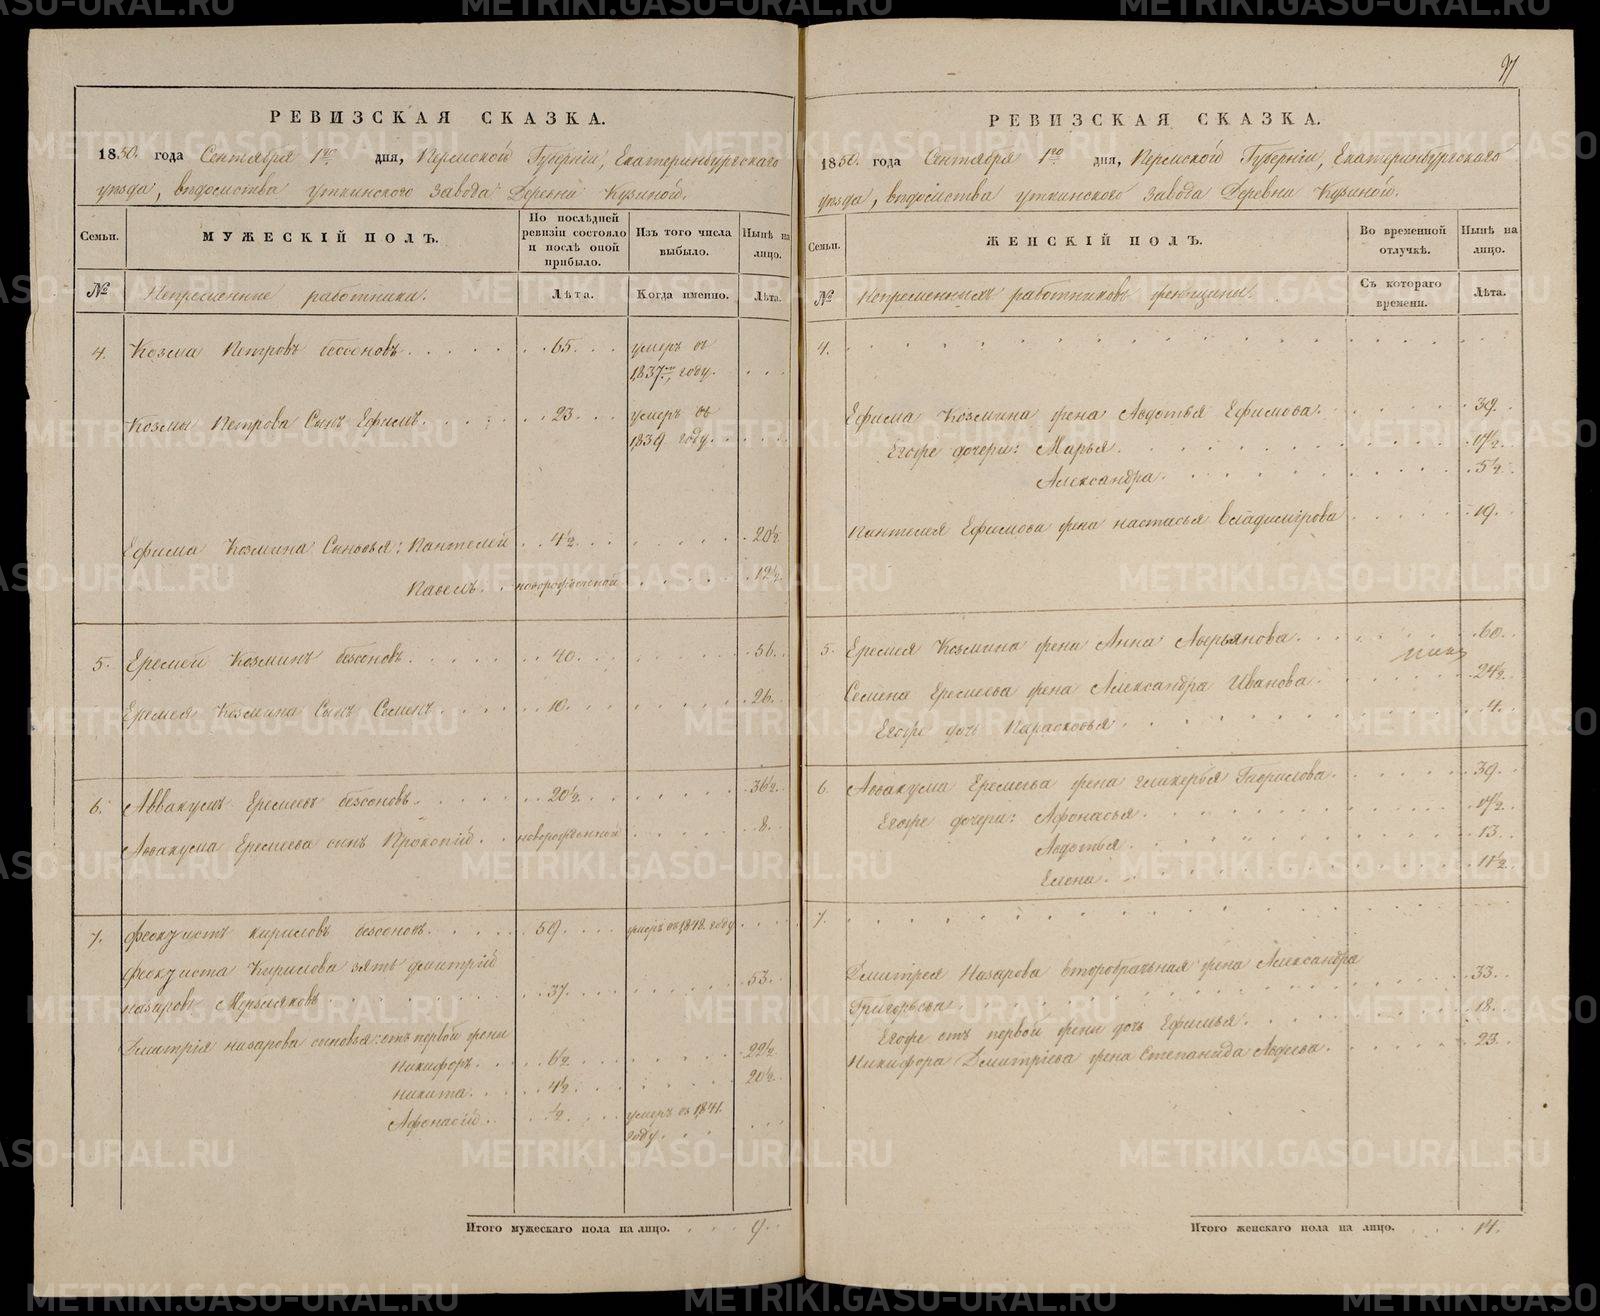 РЕВИЗСКАЯ СКАЗКА.
1850. года Сентября 1го дня, Пермской Губерніи, Екатеринбургскаго
уѣзда, вѣдомства уткинскаго завода Деревни Кузиной.
Семьи.
МУЖЕСКІЙ ПОЛЪ.
По послѣдней ревизіи состояло и послѣ оной прибыло.
Изъ того числа выбыло.
Нынѣ на лицо.
№
Непременные работники.
Лѣта.
Когда именно.
Лѣта.
4. Козма Петровъ безсоновъ. 65. умеръ въ
1837мъ году.
Козмы Петрова Сынъ Ефимъ. 23. умеръ въ
1839 году.
Ефима Козмина Сыновья: Пантелей 4½. 20½.
Павелъ. новорожденной 12½.
5. Еремей Козминъ безсоновъ. 40. 56.
Еремея Козмина Сынъ Семенъ. 10. 26.
6. Аввакумъ Еремеевъ безсоновъ. 20½. 36½.
Аввакума Еремеева сынъ Прокопій. новорожденной 8.
7. Феоктистъ кириловъ безсоновъ. 59. умеръ въ 1848. году
Феоктиста Кирилова зять дмитрій
назаровъ Мерзляковъ. 37. 53.
Дмитрія назарова сыновья: отъ первой жены
Никифоръ. 6½. 22½.
никита. 4½. 20½.
Афонасій. ½. умеръ въ 1841.
году.
Итого мужескаго пола на лицо. 9.
97
РЕВИЗСКАЯ СКАЗКА.
1850. года Сентября 1го дня, Пермской Губерніи, Екатеринбургскаго
уѣзда, вѣдомства уткинскаго завода Деревни Кузиной.
Семьи.
ЖЕНСКІЙ ПОЛЪ.
Во временной отлучкѣ.
Нынѣ на лицо.
№
Непременныхъ работниковъ женщины.
Съ котораго времени.
Лѣта.
4.
Ефима Козмина жена Авдотья Ефимова. 39.
Егоже дочери: Марья. 17½.
Александра. 5½.
Пантелея Ефимова жена настасья Владимірова 19.
5. Еремея Козмина жена Анна Аверьянова. 60.
Семена Еремеева жена Александра Иванова. 24½.
Егоже дочь Парасковья. 4.
6. Аввакума Еремеева жена гликерья Гаврилова. 39.
Егоже дочери: Афонасья. 17½.
Авдотья. 13.
Елена. 11½.
7.
Дмитрея Назарова второбрачная жена Александра
Григорьева. 33.
Егоже отъ первой жены дочь Ефимья. 18.
Никифора Дмитріева жена Степанида Авдеева. 23.
Итого женскаго пола на лицо. 14.
METRIKI.GASO-URAL.RU